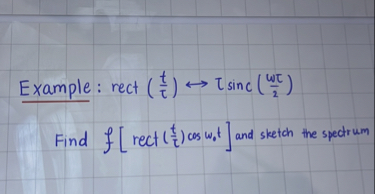 Example : rect (t/τ) ↔ τ sinc (ωτ/2)
Find ℱ [rect (t/τ) cos ω₀t] and sketch the spectrum